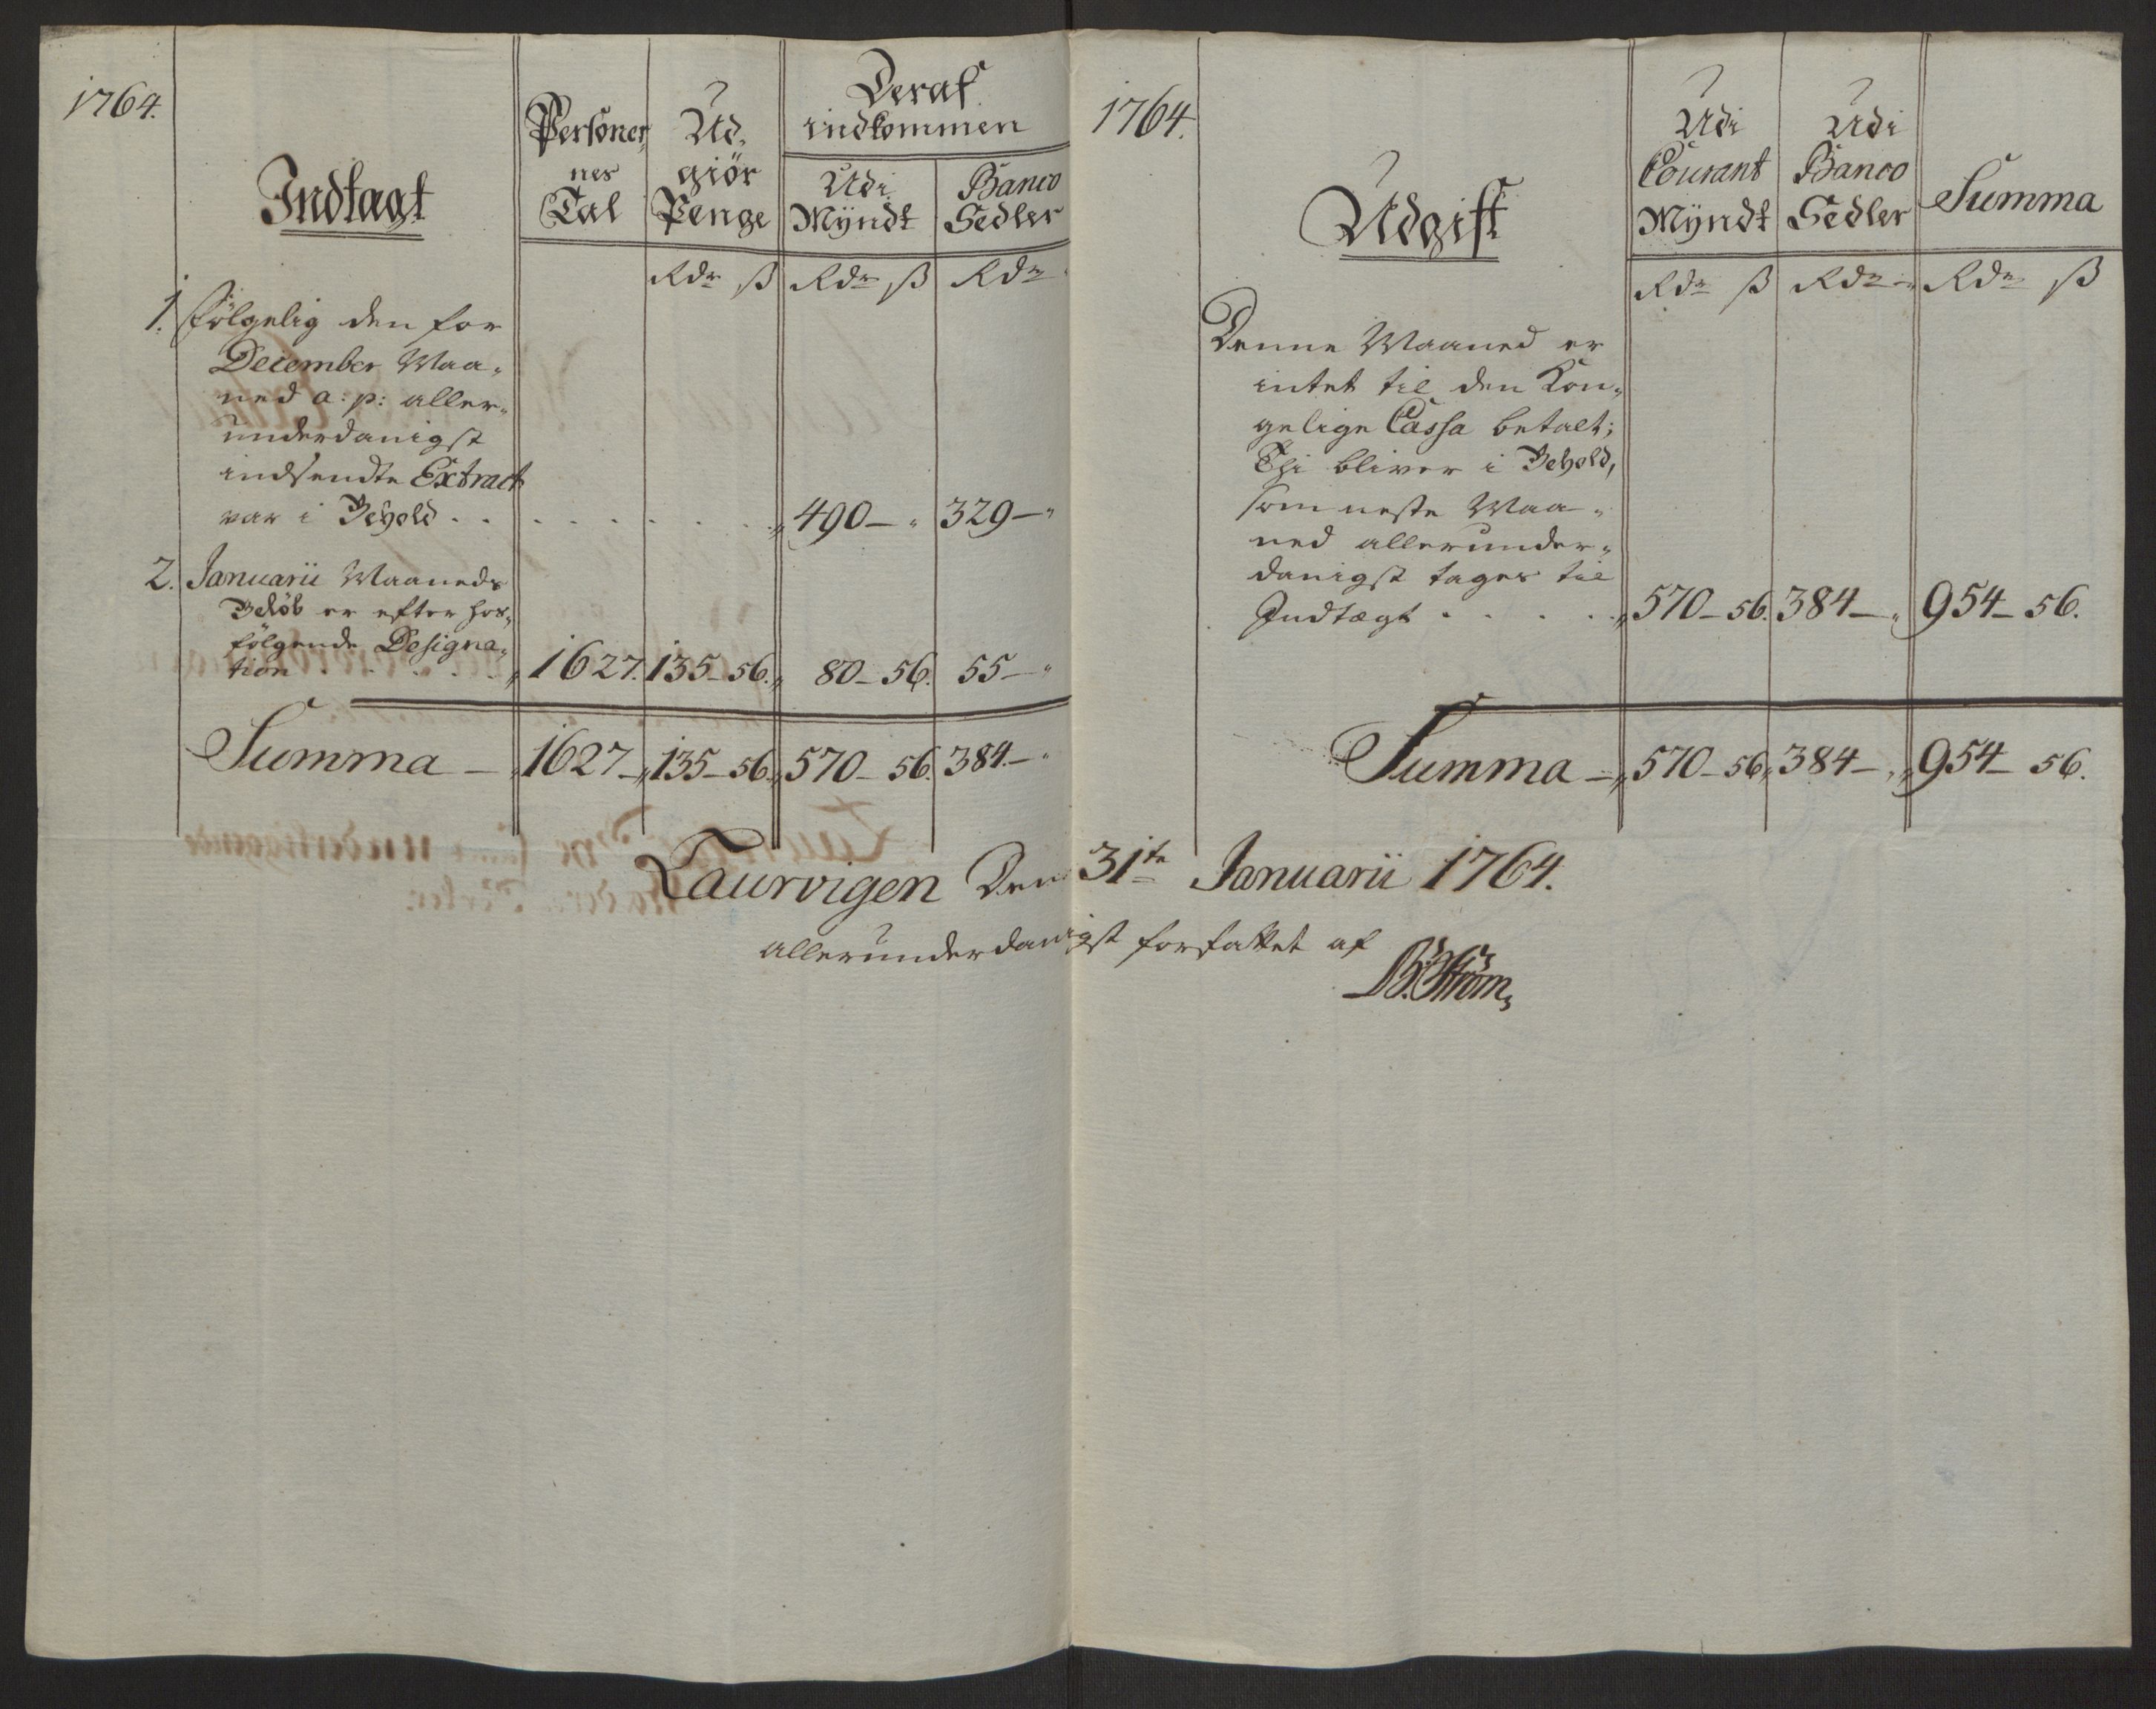 1764.
Indtagt
Personer,
nes
Tal
Ud,
giör
Penge
Deraf
indkommen
Udi
Mÿndt
Banco
Sedler
Rdr ß Rdr ß Rdr
1. Fölgelig den for
December Maa,,
ned a: p: aller,,
underdanigst
indsendte Extract
var i Behold . . . . . . . . 490 — " 329 — "
2. Januarii Maaneds
Belöb er efter hos,,
fölgende Designa,,
tion . . . . . 1627. 135 — 56. 80 — 56. 55 — "
Summa — 1627 — 135 — 56. 570 — 56. 384 — "
1764.
Udgift
Udi
Courant
Mÿndt
Udi
Banco
Sedler
Summa
Rdr ß Rdr Rdr ß
Denne Maaned er
intet til den Kon,,
gelige Cassa betalt;
Thi bliver i Behold,
som neste Maa,,
ned allerunder,,
danigst tages til
Indtægt . . . . . 570 — 56. 384 — " 954 — 56.
Summa — 570 — 56 384 — " 954 — 56.
Laurvigen Den 31te Januarii 1764.
allerunderdanigst forfattet af
B. Ström